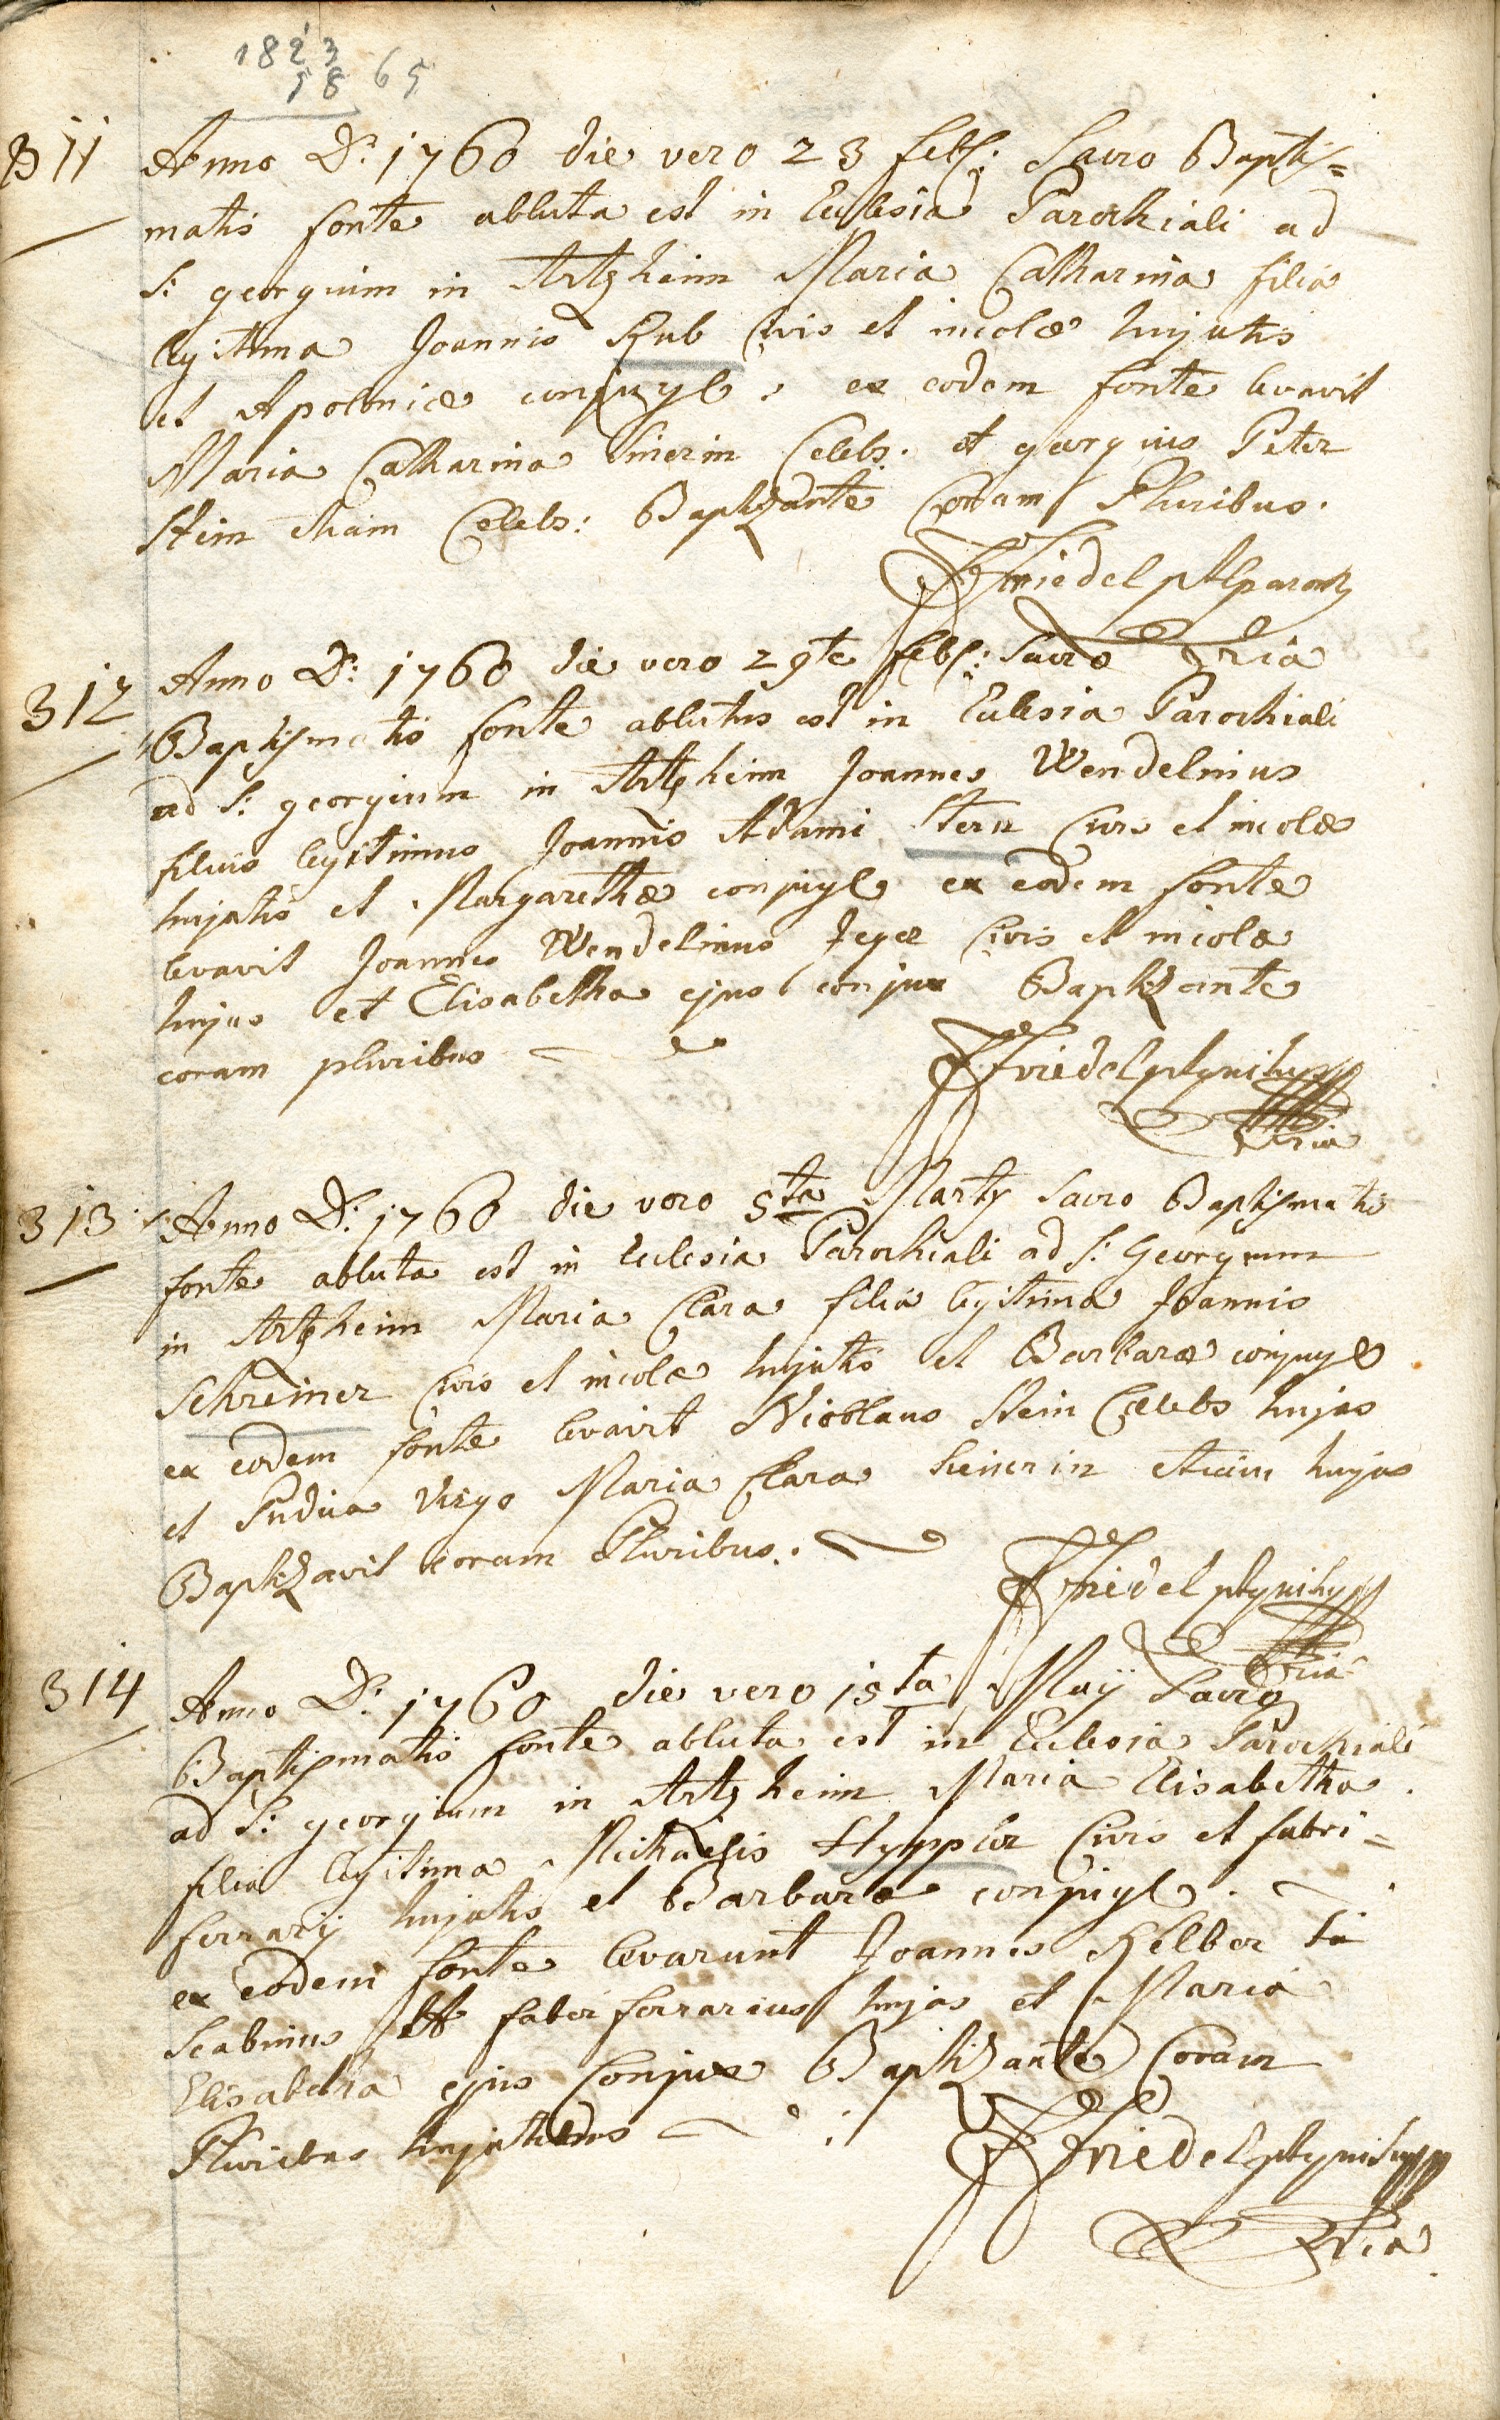 1823
58 65
311 Anno D: 1760 die vero 23 feb: Sacro Baptis=
matis fonte abluta est in Eclesia Parochiali ad
S: georgium in Artzheim Maria Catharina filia
legitima Joannis Kub civis et incolæ hujatis
et Apoloniæ conjugū ex eodem fonte levavit
Maria Catharina Celebs. et georgius Peter
Stein Celebs: Baptizante Coram Pluribus.
Friedel
312 Anno D: 1760 die vero 29te feb: Sacro
Baptismatis fonte ablutus est in Eclesia Parochiali
ad S: georgium in Artzheim Joannes Wendelinus
filius legitimus Joannis Adami Stern civis et incolæ
hujatis et Margarethæ conjugū ex eodem fonte
levavit Joannes Wendelinus Jeger Civis et incola
hujus et Elisabetha ejus conjux Baptizante
coram pluribus
Friedel
313 Anno D: 1760 die vero 5ta Martÿ Sacro Baptismatis
fonte abluta est in Eclesia Parochiali ad S: Georgium
in Artzheim Maria Clara filia legitima Joannis
Schreiner civis et incolæ hujatis et Barbaræ conjugū
ex eodem fonte levavit Nicolaus Stein Cælebs hujas
et Pudica Virgo Maria Clara hujas
Baptizavit coram Pluribus.
Friedel
314 Anno D: 1760 die vero 15ta Maÿ Sacro
Baptismatis fonte abluta est in Eclesia Parochiali
ad S: georgium in Artzheim Maria Elisabetha
filia legitima Michaelis Hyppler Civis et fabri=
ferrarÿ hujatis et Barbaræ conjugū.
ex eodem fonte levarunt Joannes Kelber
Scabinus et faber ferrarius hujas et Maria
Elisabetha ejus Conjux Baptizante Coram
Pluribus hujatibus
Friedel